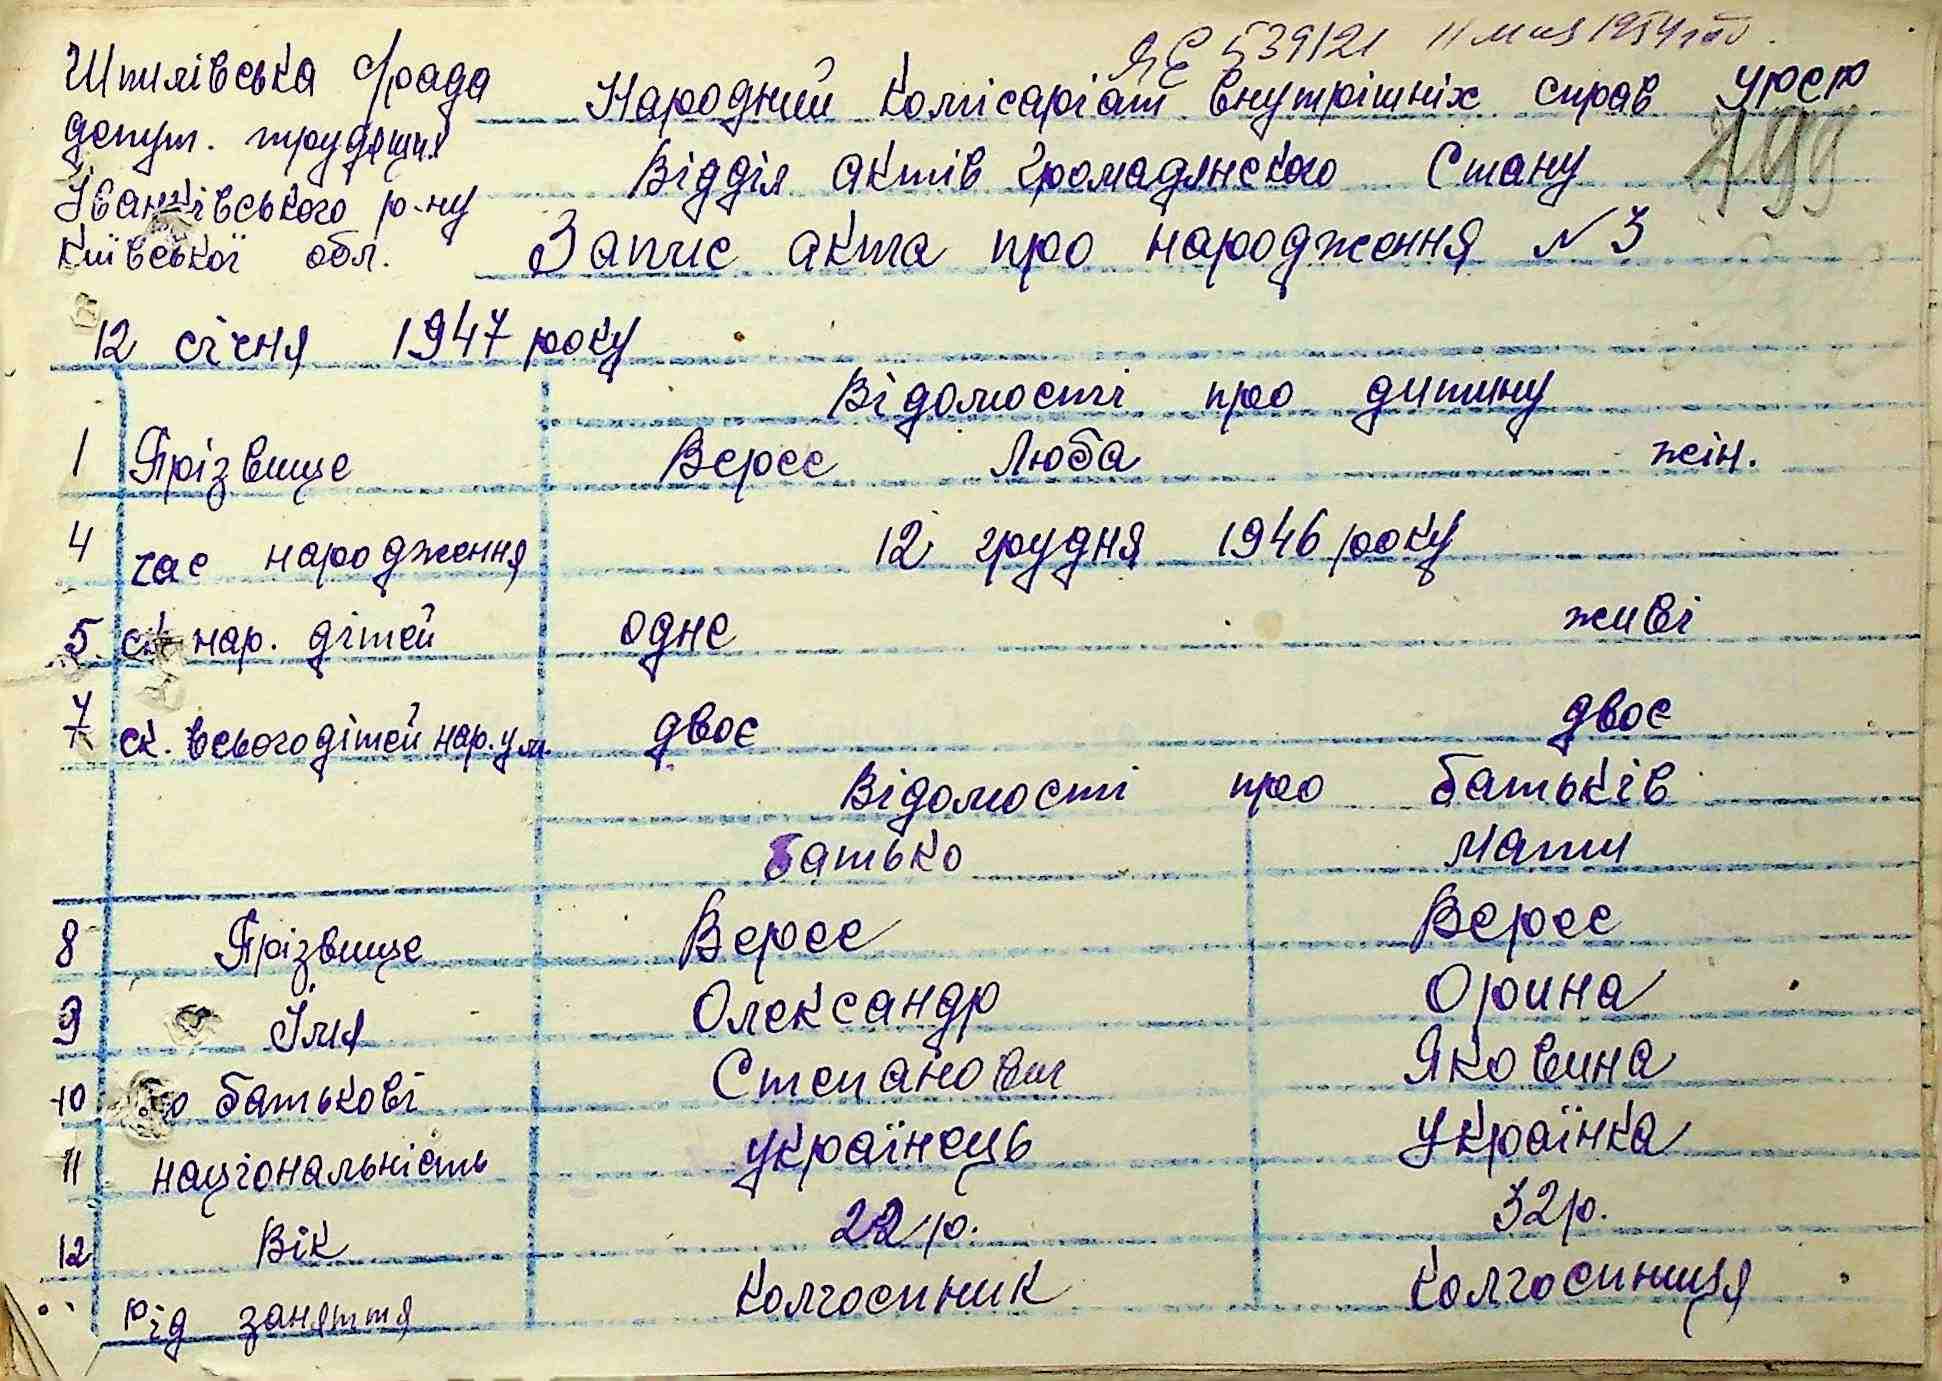 ЯЄ 539121 11 мая 1954 год.
Шпилівська с/рада
депут. трудящих
Іванківського р-ну
Київської обл.
Народний комісаріат внутрішніх справ УРСР
Відділ актів громадянского Стану
Запис акта про народження N 3
12 січня 1947 року
Відомості про дитину
1 Прізвище Верес Люба жін.
4 час народження 12 грудня 1946 року
5 ск. нар. дітей одне живі
7 ск. всього дітей нар. у м. двоє двоє
Відомості про батьків
батько мати
8 Прізвище Верес Верес
9 Імя Олександр Орина
10 по батькові Степанович Яковина
11 національність українець українка
12 Вік 22 р. 32 р.
рід заняття колгоспник колгоспниця